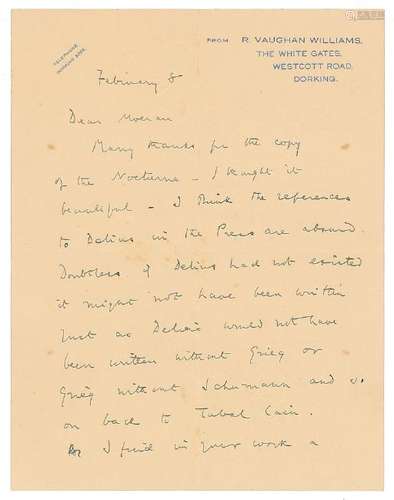 TELEPHONE
FROM R. VAUGHAN WILLIAMS,
THE WHITE GATES,
WESTCOTT ROAD,
DORKING.
February 8
Dear Moeran
Many thanks for the copy
of the Nocturne - I thought it
beautiful - I think the references
to Delius in the Press are absurd.
Doubtless if Delius had not existed
it might not have been written
just as Delius would not have
been written without Grieg or
Grieg without Schumann and so
on back to Tubal Cain.
I find in your work a